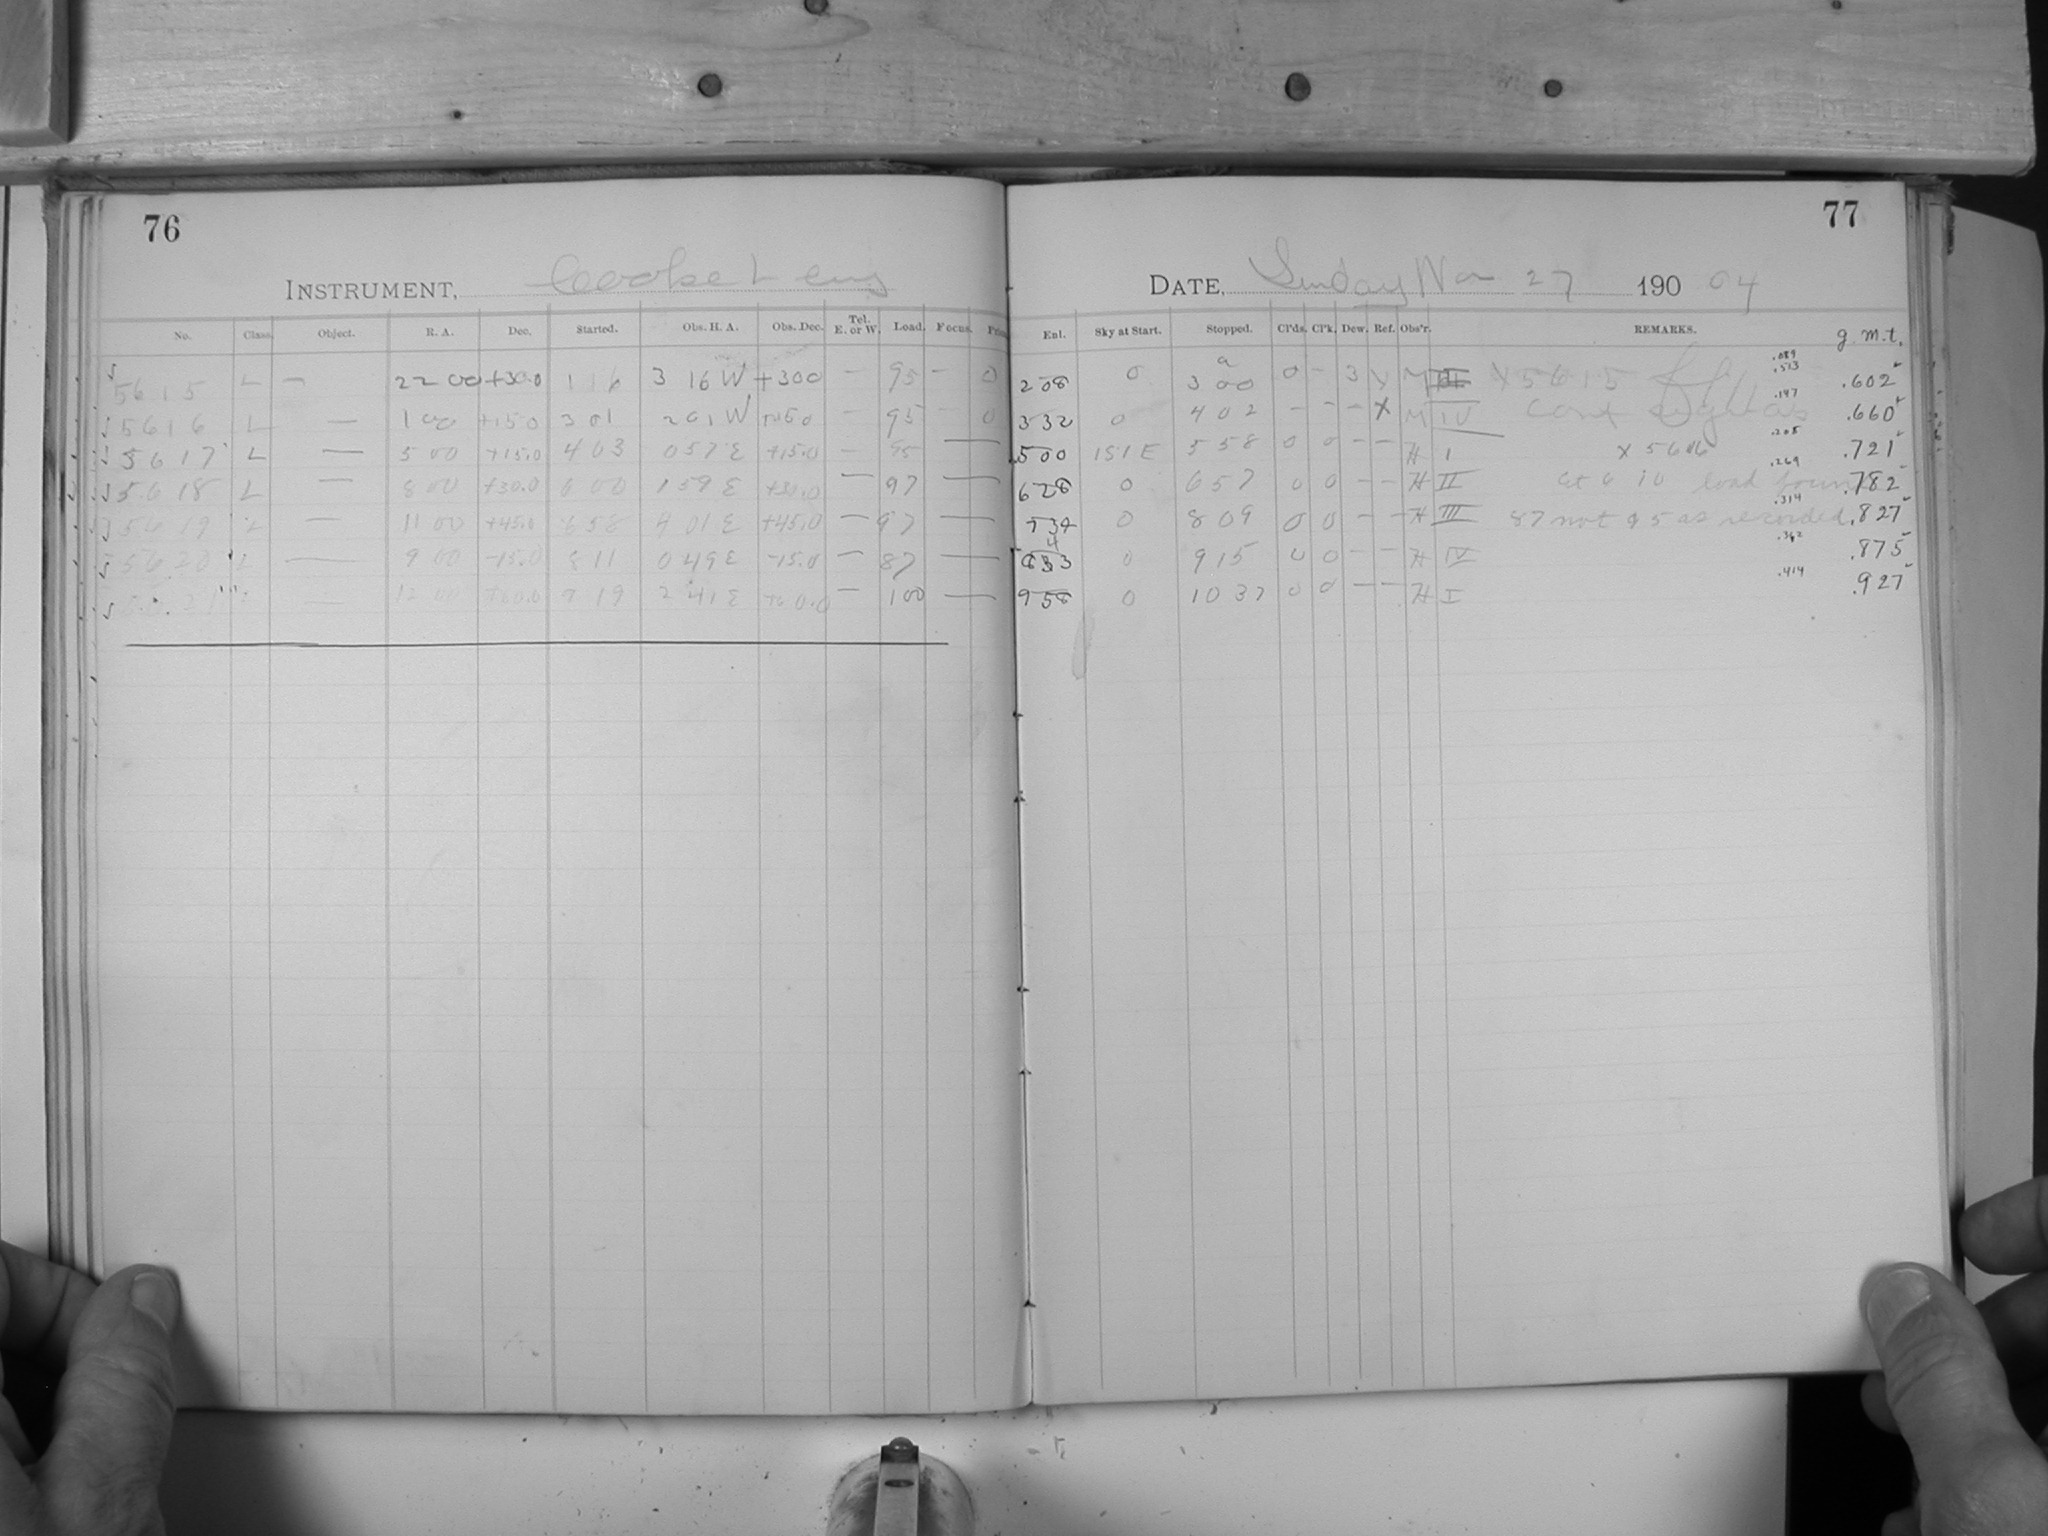 76
INSTRUMENT, Cooke Lens
No. Class. Object. R. A. Dec. Started. Obs. H. A. Obs. Dec. Tel. E. or W. Load. Focus.
5615 L — 22 00 +30.0 1 16 3 16 W +300 — 95 — 0
5616 L — 1 00 +15.0 3 01 2 01 W +150 — 95 0
5617 L — 5 00 +15.0 4 03 0 57 E +15.0 — 95 —
5618 L — 8 00 +30.0 6 00 1 59 E +30.0 — 97 —
5619 L — 11 00 +45.0 6 58 4 01 E +45.0 — 97 —
5620 L — 9 00 -15.0 8 11 0 49 E -15.0 — 87 —
12 00 +60.0 9 19 2 41 E +60.0 — 100 —
77
DATE, Sunday Nov 27 190 04
Enl. Sky at Start. Stopped. Cl'ds. Cl'k. Dew. Ref. Obs'r. REMARKS. g. m. t.
208 0 3 00 a 0 - 3 X M X 5615 .523 .602
332 0 4 02 - - - X M IV .147 .660
500 1S1E 5 58 0 0 - - H I X 5616 .205 .721
628 0 6 57 0 0 - - H II at 6 10 load found .269 .782
734 0 8 09 0 0 - - H III 87 not 95 as recorded .314 .827
0 9 15 0 0 - - H IV .362 .875
958 0 10 37 0 0 - - H I .414 .927